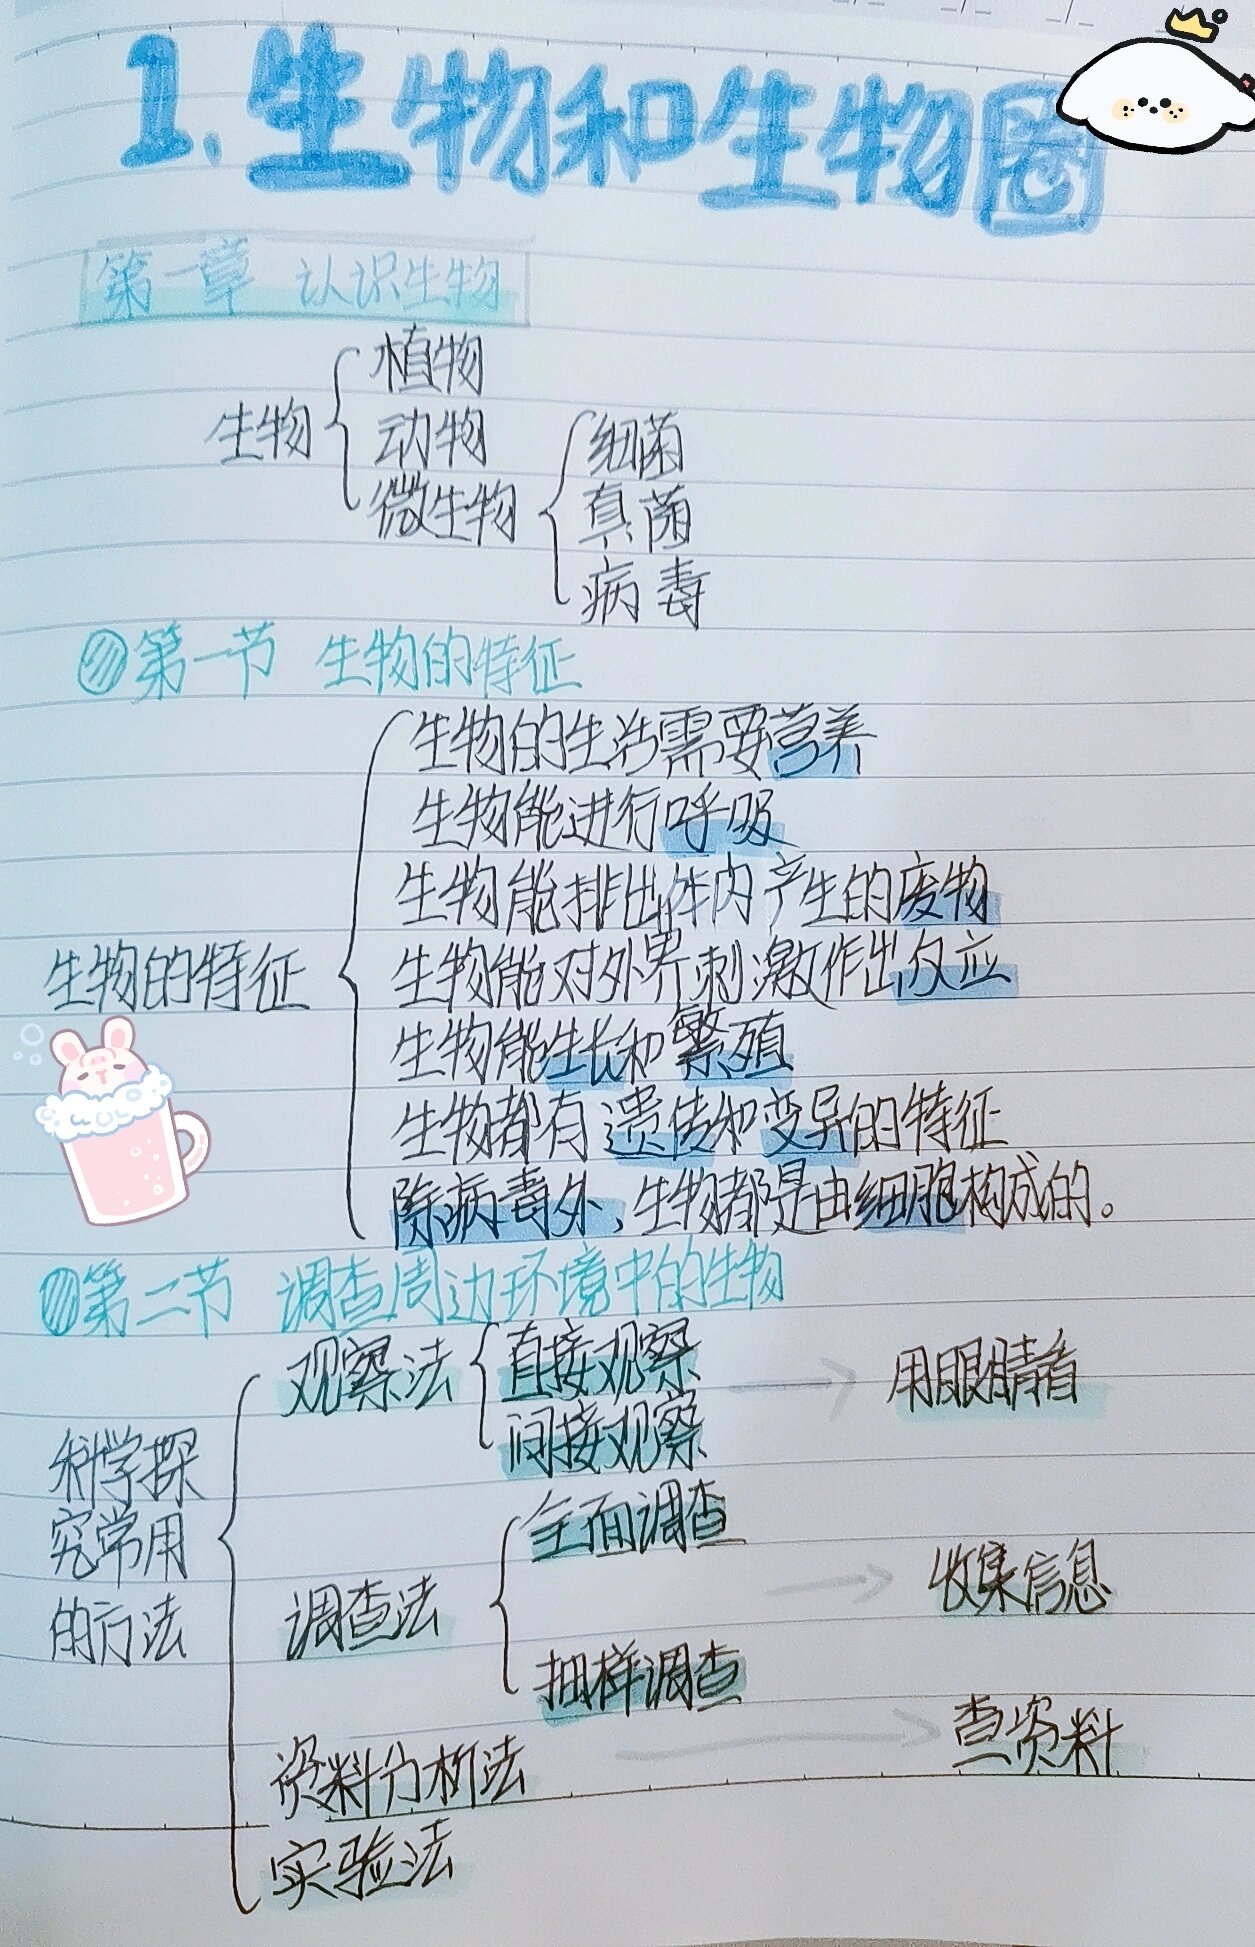 1.生物和生物圈
第一章 认识生物
生物
植物
动物
微生物
细菌
真菌
病毒
第一节 生物的特征
生物的特征
生物的生活需要营养
生物能进行呼吸
生物能排出体内产生的废物
生物能对外界刺激作出反应
生物能生长和繁殖
生物都有遗传和变异的特征
除病毒外,生物都是由细胞构成的。
第二节 调查周边环境中的生物
科学探
究常用
的方法
观察法
直接观察
间接观察
用眼睛看
调查法
全面调查
抽样调查
收集信息
资料分析法
查资料
实验法